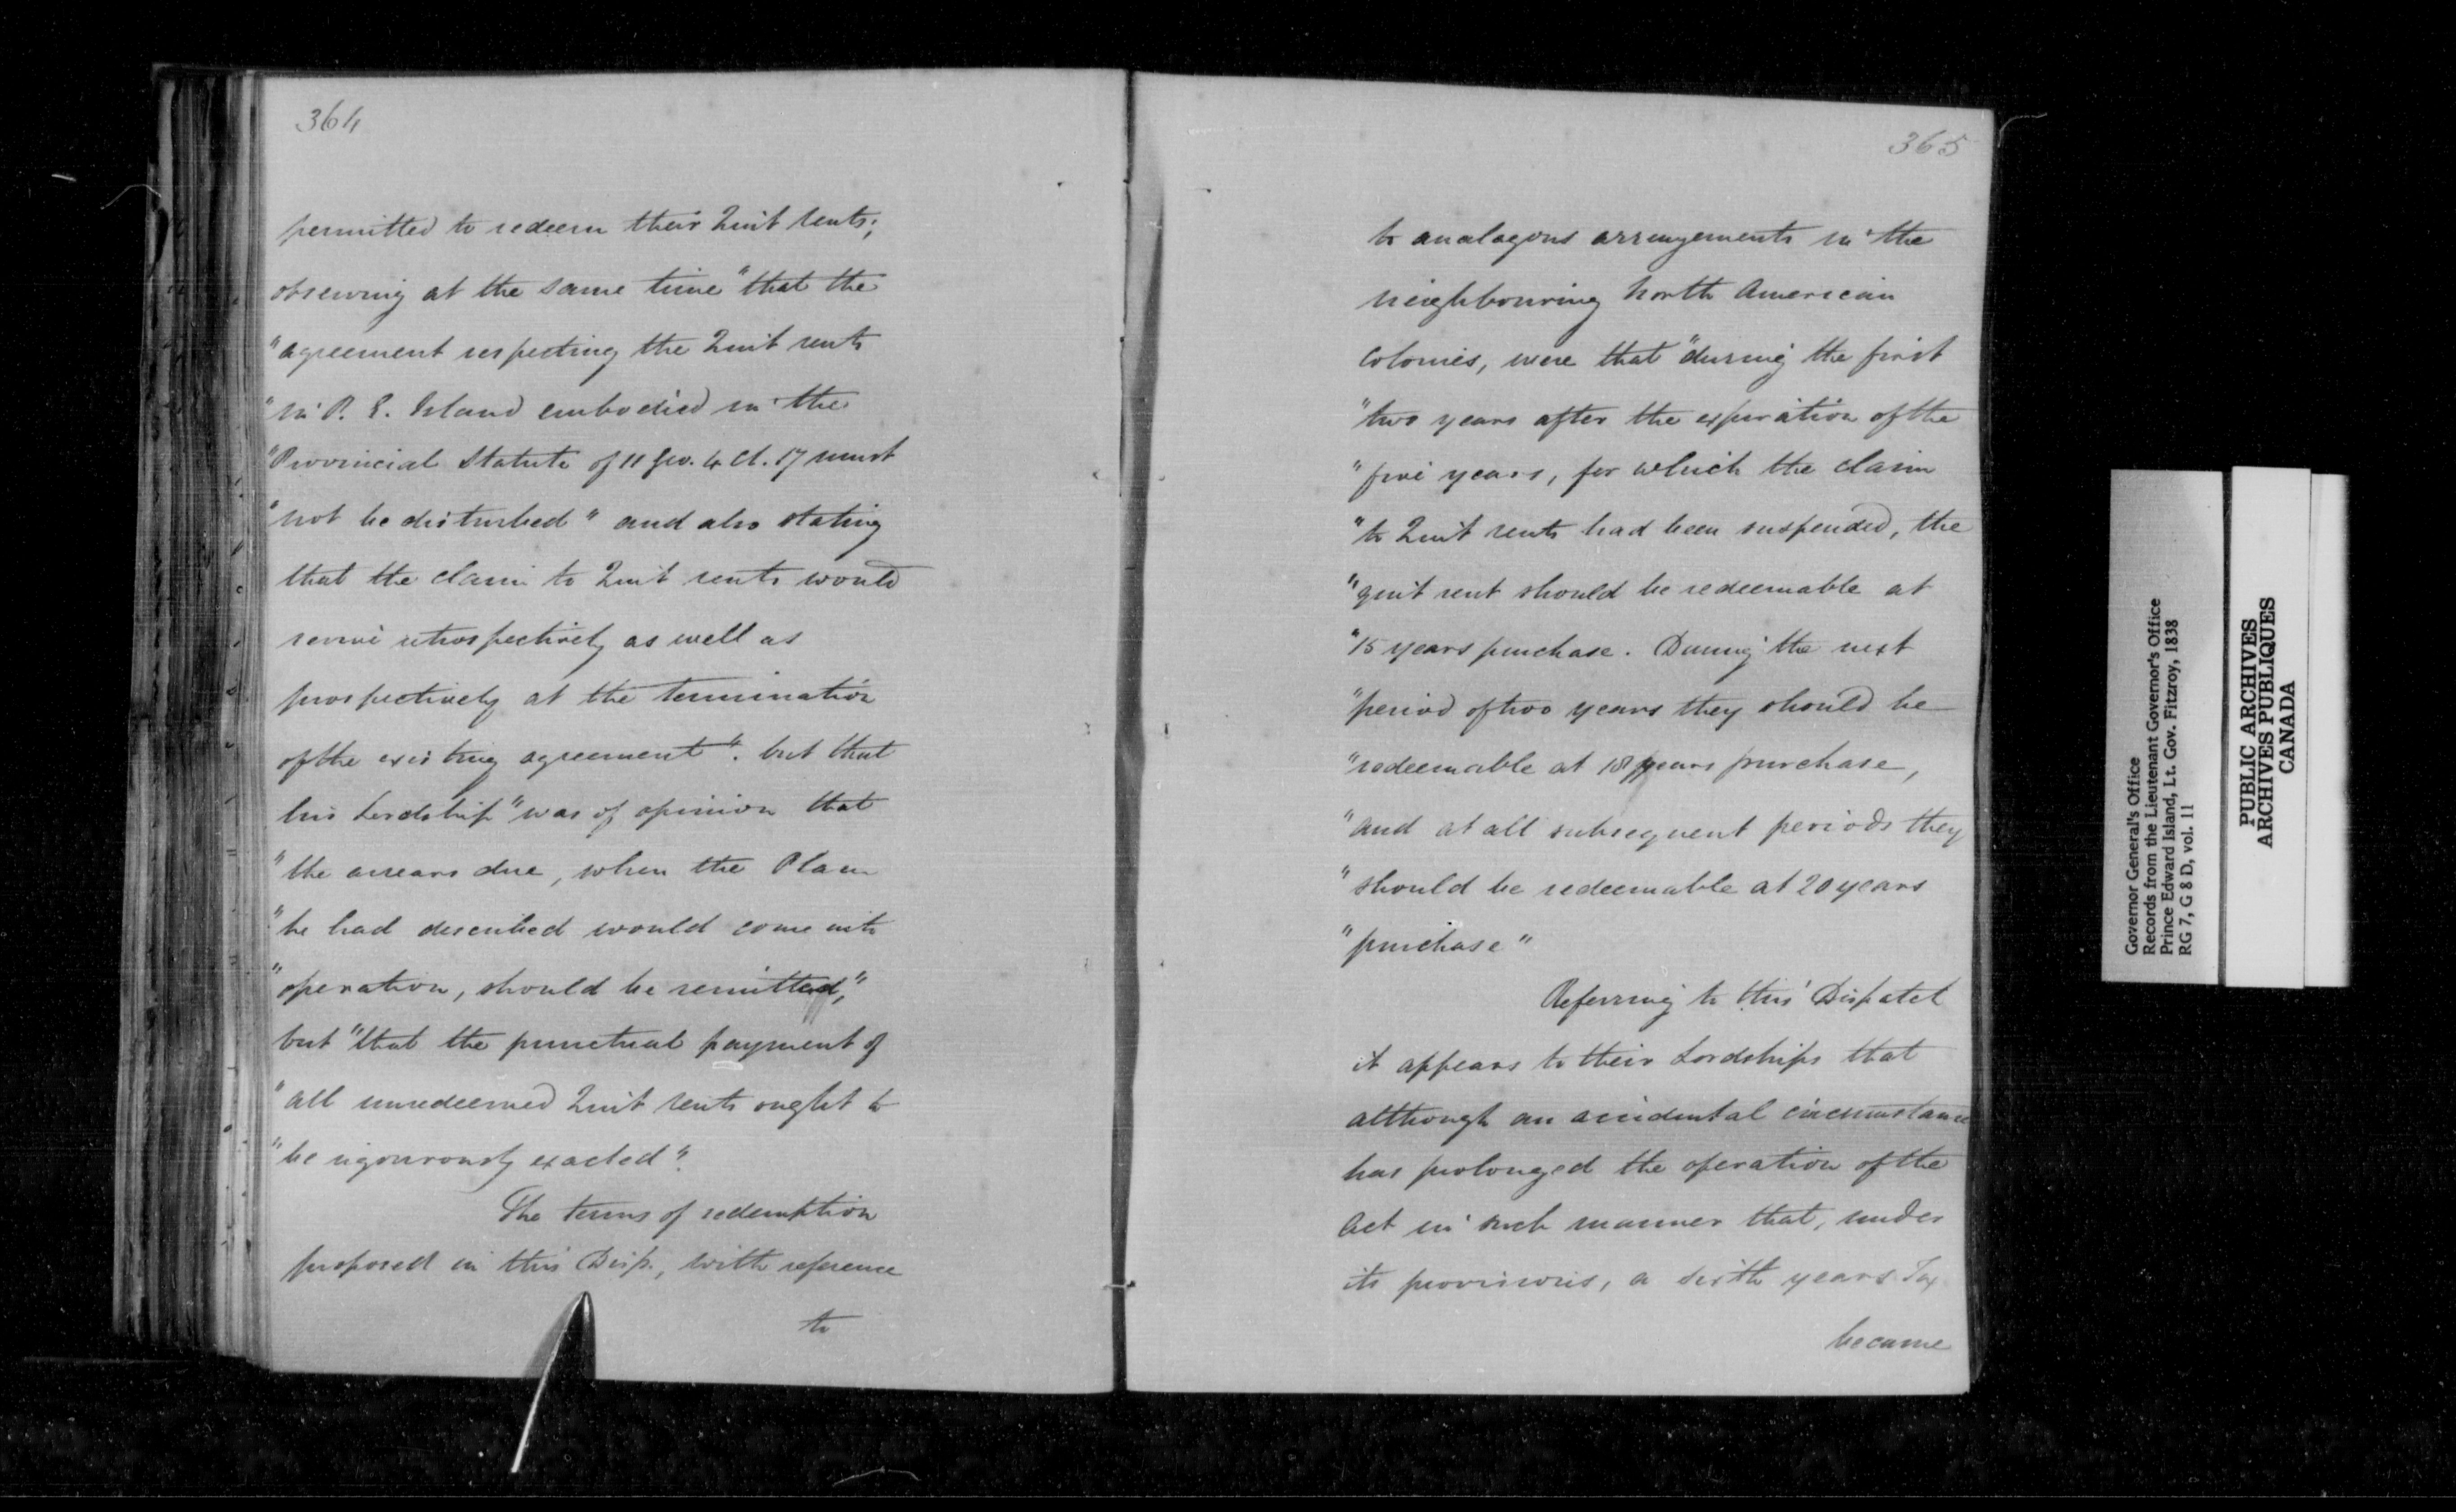 364
permitted to redeem their Quit rents;
observing at the same time "that the
"agreement respecting the Quit rents
"in P. E. Island embodied in the
"Provincial Statute of 11 Geo. 4 Ct. 17 must
"not be disturbed" and also stating
that the claim to Quit rents would
revive retrospectively as well as
prospectively at the termination
of the existing agreement". but that
his Lordship "was of opinion that
"the arrears due, when the Plan
"he had described would come into
"operation, should be remitted,"
but "that the punctual payment of
"all unredeemed Quit rents ought to
"be rigourously exacted".
The terms of redemption
proposed in this Disp., with reference
to
365
to analogous arrangements in the
neighbouring North American
Colonies, were that "during the first
"two years after the expiration of the
"five years, for which the claim
"to Quit rents had been suspended, the
"quit rent should be redeemable at
"15 years purchase. During the next
"period of two years they should be
"redeemable at 18 years purchase,
"and at all subsequent periods they
"should be redeemable at 20 years
"purchase"
Referring to this Dispatch
it appears to their Lordships that
although an accidental circumstance
has prolonged the operation of the
Act in such manner that, under
its provisions, a sixth years Tax
became
Governor General's Office
Records from the Lieutenant Governor's Office
Prince Edward Island, Lt. Gov. Fitzroy, 1838
RG 7, G 8 D, vol. 11
PUBLIC ARCHIVES
ARCHIVES PUBLIQUES
CANADA